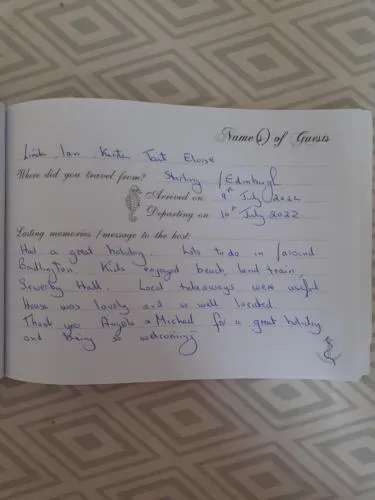 Name(s) of Guests
Linda Ian Kirstin Tait Eloise
Where did you travel from? Stirling / Edinburgh
Arrived on 9th July 2022
Departing on 16th July 2022
Lasting memories / message to the host:
Had a great holiday. Lots to do in / around
Bridlington. Kids enjoyed beach, land train,
Sewerby Hall. Local takeaways were useful
House was lovely and so well located.
Thank you Angela & Michael for a great holiday
and being so welcoming